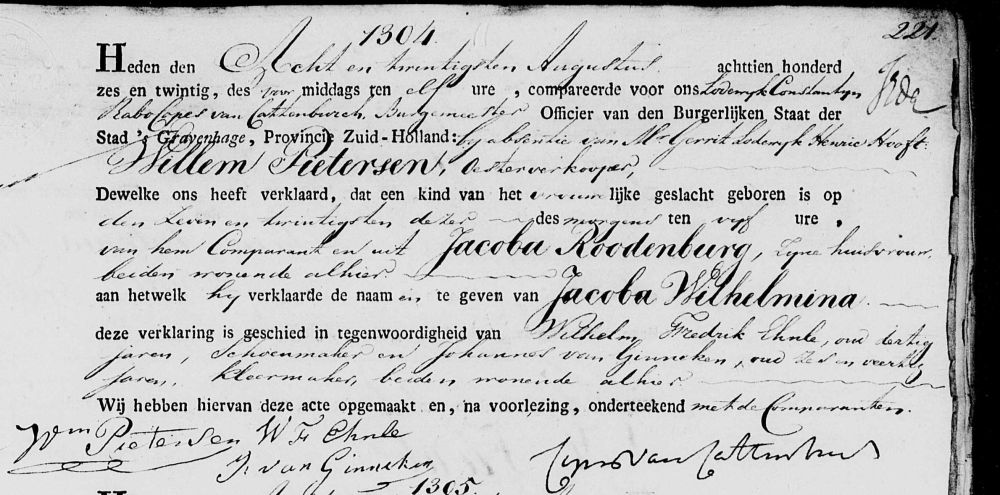 1304.
221.
Heden den Acht en twintigsten Augustus achttien honderd
zes en twintig, des voor middags ten elf ure, compareerde voor ons Lodewyk Constantyn
Rabo Copes van Cattenburch, Burgemeester Officier van den Burgerlijken Staat der
Stad 's Gravenhage, Provincie Zuid-Holland: by absentie van Mr. Gerrit Lodewyk Henric Hooft:
Willem Pietersen, oesterverkooper,
Dewelke ons heeft verklaard, dat een kind van het vrouwelijke geslacht geboren is op
den Zeven en twintigsten dezer des morgens ten vyf ure,
van hem Comparant en uit Jacoba Roodenburg, Zyne huisvrouw
beiden wonende alhier
aan hetwelk hy verklaarde de naamen te geven van Jacoba Wilhelmina.
deze verklaring is geschied in tegenwoordigheid van Wilhelm Fredrik Ehnle, oud dertig
jaren, Schoenmaker en Johannes van Ginneken, oud zes en veertig
jaren, kleermaker, beiden wonende alhier
Wij hebben hiervan deze acte opgemaakt en, na voorlezing, onderteekend met de Comparanten.
Wem Pietersen W F Ehnle
J. van Ginneken Copes van Cattenburch
1305.